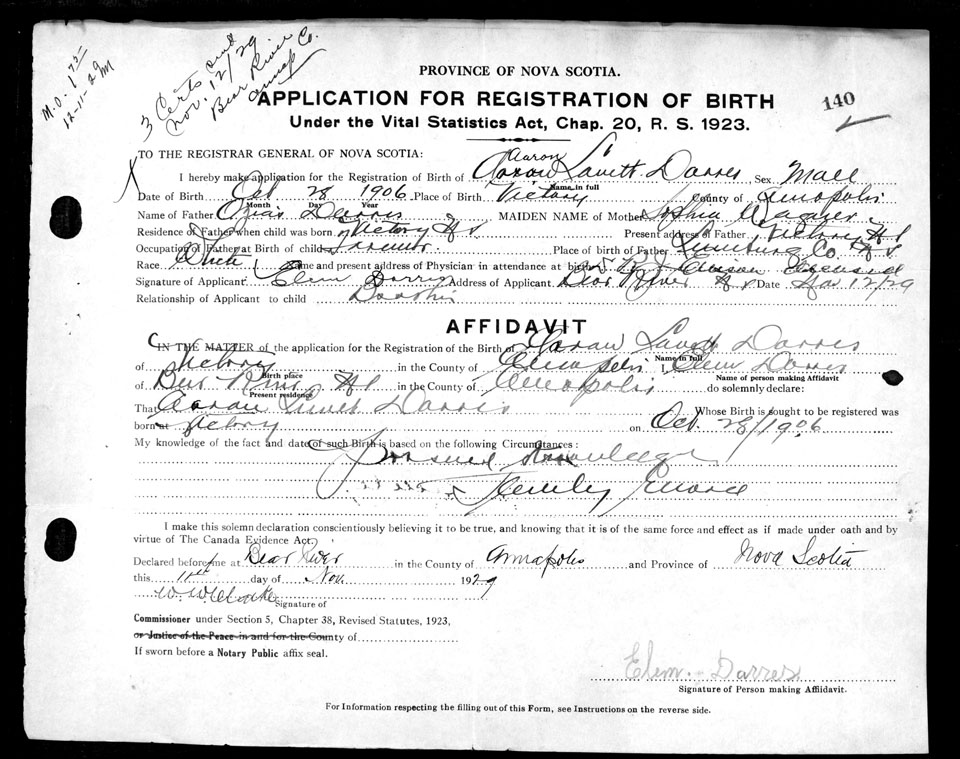 M.O. 1 75
12-11-29 M
3 Certs sent
Nov. 12/29
Bear River
Annap Co.
PROVINCE OF NOVA SCOTIA.
APPLICATION FOR REGISTRATION OF BIRTH
140
Under the Vital Statistics Act, Chap. 20, R. S. 1923.
TO THE REGISTRAR GENERAL OF NOVA SCOTIA:
Aaron
I hereby make application for the Registration of Birth of Aaron Lavett Darres Sex Male
Name in full
Date of Birth Oct 28 1906 Place of Birth Victory County of Annapolis
Month Day Year
Name of Father Ozias Darres MAIDEN NAME of Mother Sophia Wagner
Residence of Father when child was born Victory N S Present address of Father Victory N S
Occupation of Father at Birth of child Place of birth of Father Lunenburg Co. N S
Race White Name and present address of Physician in attendance at birth
Signature of Applicant Elem Darres Address of Applicant Bear River N S Date Nov 12/29
Relationship of Applicant to child
AFFIDAVIT
IN THE MATTER of the application for the Registration of the Birth of Aaron Lavett Darres
Name in full
of Victory in the County of Annapolis I, Elem Darres
Birth place Name of person making Affidavit
of Bear River N S in the County of Annapolis do solemnly declare:
Present residence
That Aaron Lavett Darres Whose Birth is sought to be registered was
born at Victory on Oct. 28/1906
My knowledge of the fact and date of such Birth is based on the following Circumstances:
Personal Knowledge
Family
I make this solemn declaration conscientiously believing it to be true, and knowing that it is of the same force and effect as if made under oath and by
virtue of The Canada Evidence Act.
Declared before me at Bear River in the County of Annapolis and Province of Nova Scotia
this 11th day of Nov 1929
W. W. Clarke
Signature of
Commissioner under Section 5, Chapter 38, Revised Statutes, 1923,
or Justice of the Peace in and for the County of
If sworn before a Notary Public affix seal.
Elem. Darres
Signature of Person making Affidavit.
For Information respecting the filling out of this Form, see Instructions on the reverse side.